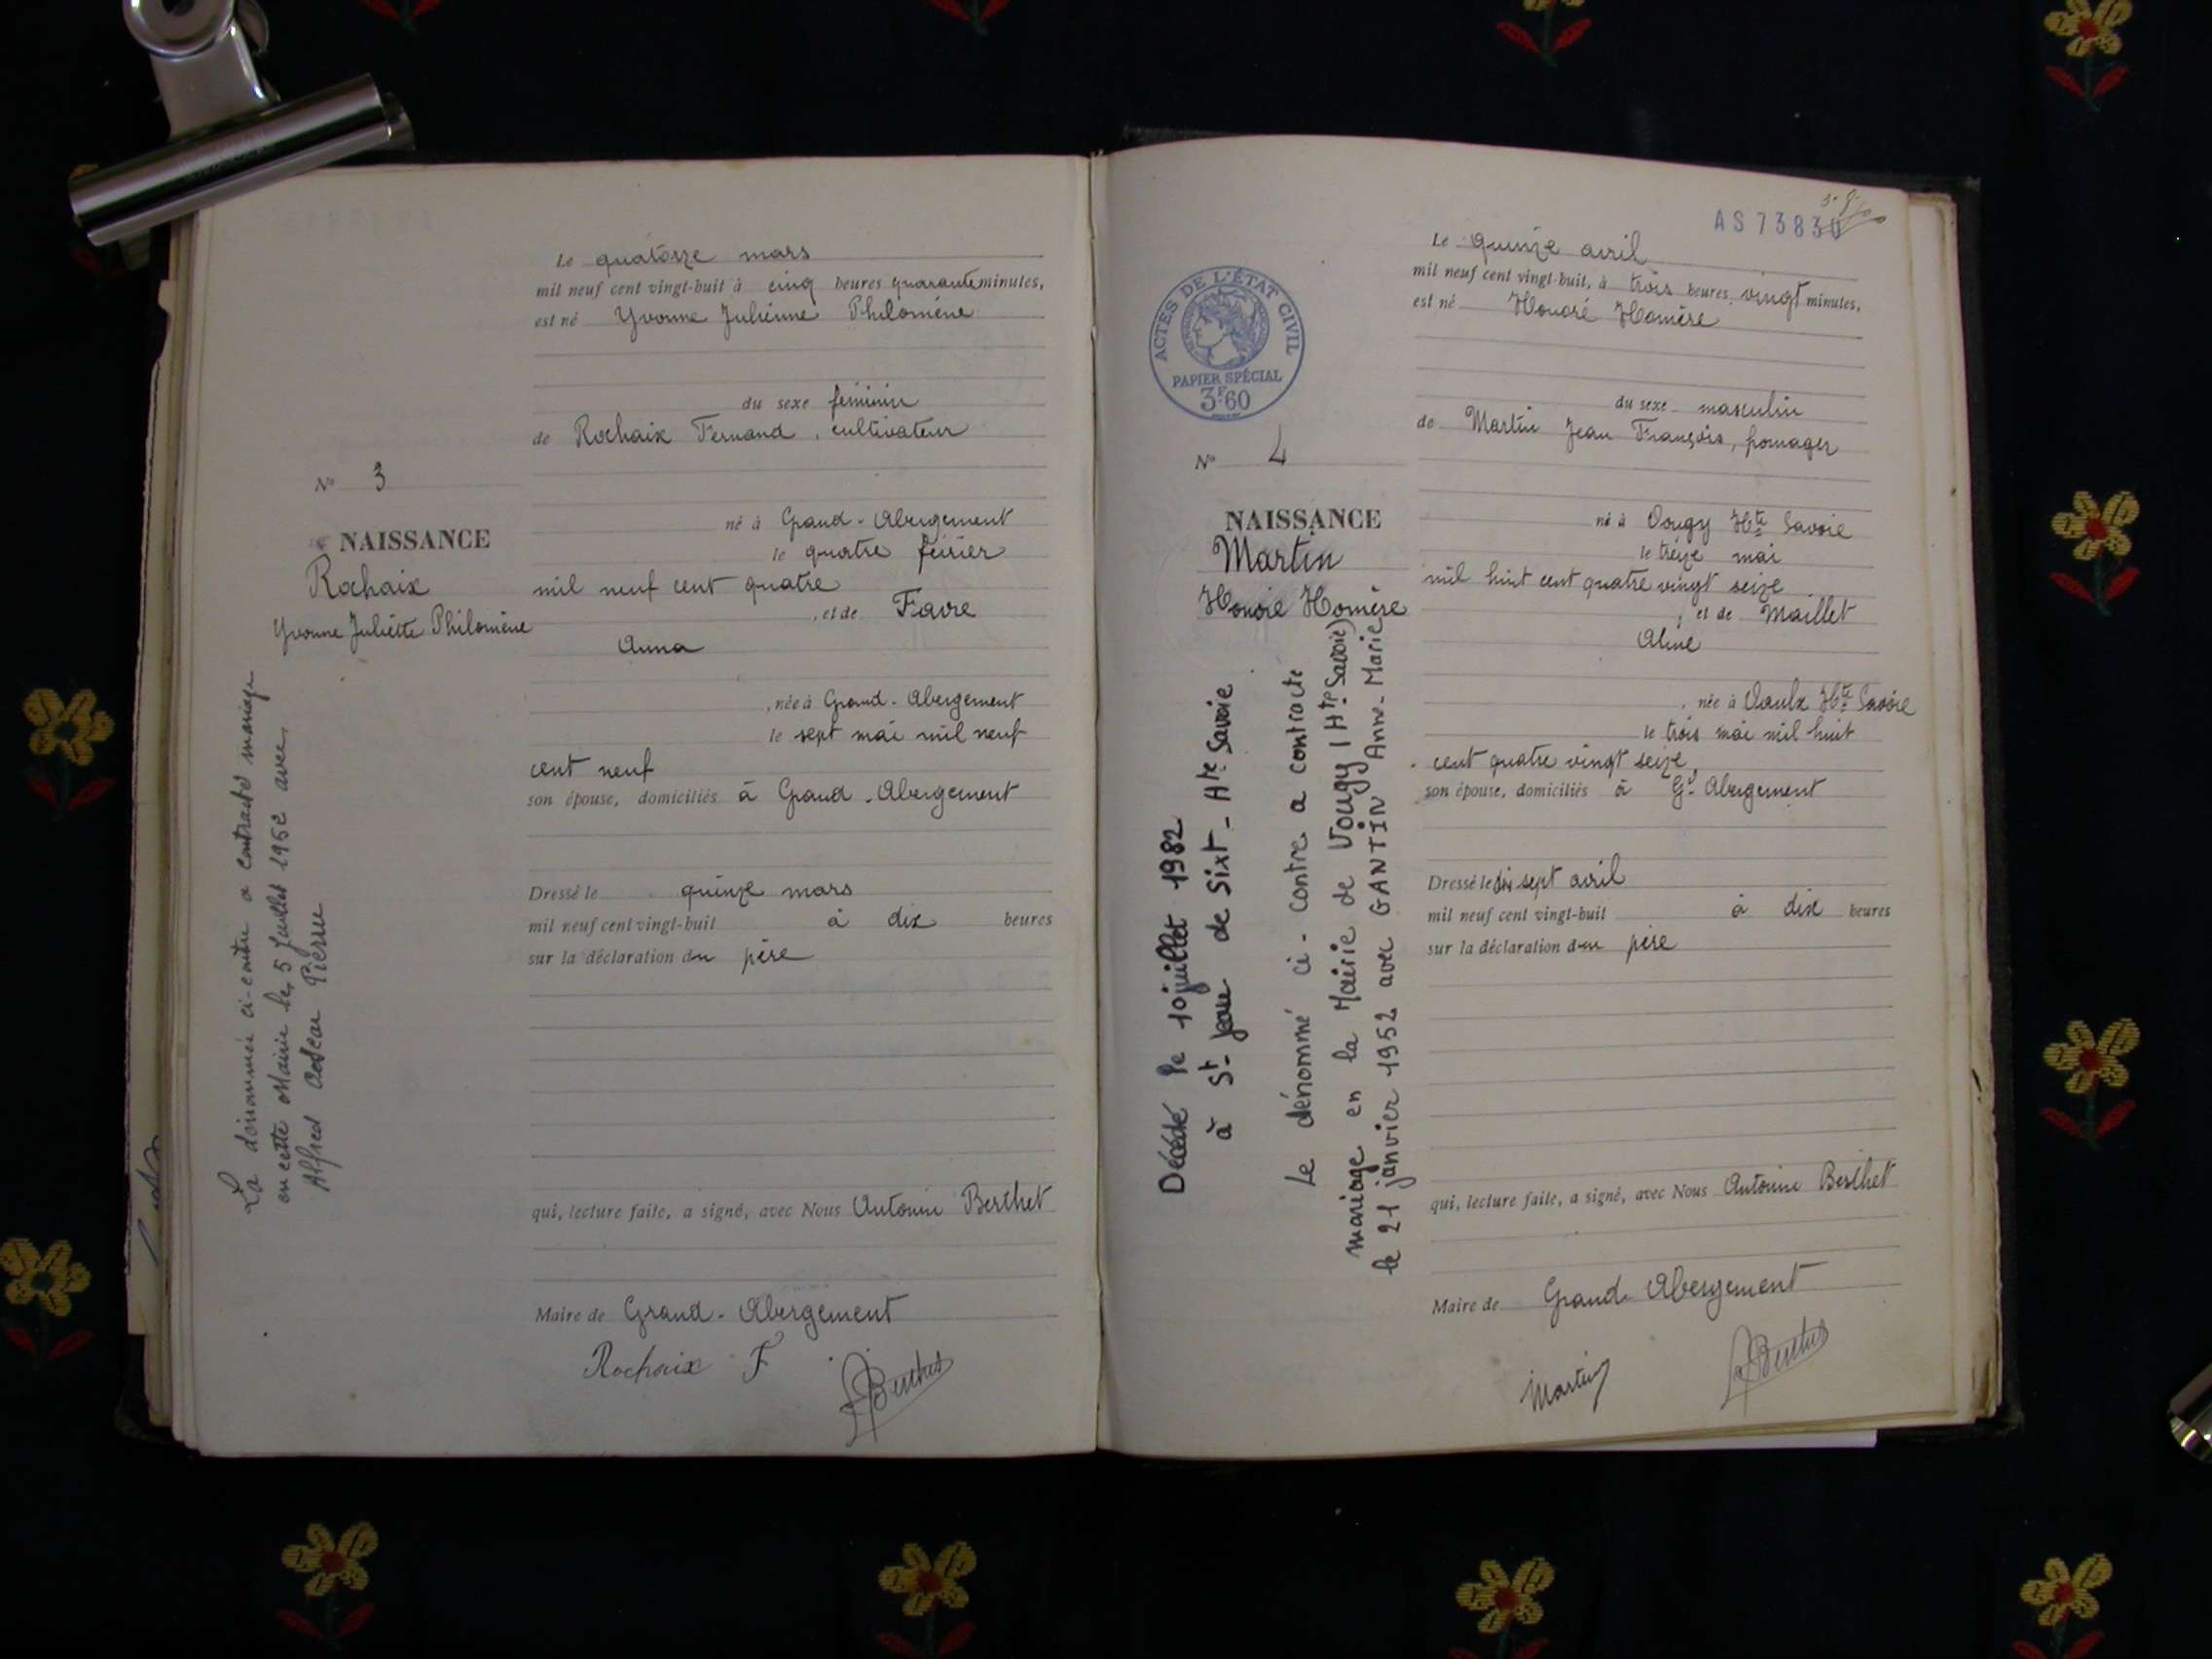 Le quatorze mars
mil neuf cent vingt-huit à cinq heures quarante minutes,
est né Yvonne Julienne Philomène
du sexe féminin
de Rochaix Fernand, cultivateur
né à Grand-Abergement
le quatre février
mil neuf cent quatre
, et de Favre
Anna
, née à Grand-Abergement
le sept mai mil neuf
cent neuf
son épouse, domiciliés à Grand-Abergement
Dressé le quinze mars
mil neuf cent vingt-huit à dix heures
sur la déclaration du père
qui, lecture faite, a signé, avec Nous Antonin Berthet
Maire de Grand-Abergement
Rochaix F
Berthet
N° 3
NAISSANCE
Rochaix
Yvonne Juliette Philomène
La dénommée ci-contre a contracté mariage
en cette Mairie le 5 Juillet 1952 avec
Alfred Pierre
AS73830
Le quinze avril
mil neuf cent vingt-huit, à trois heures, vingt minutes,
est né Honoré Homère
du sexe masculin
de Martin Jean François, fromager
né à Vougy Hte Savoie
le treize mai
mil huit cent quatre vingt seize
, et de Maillet
Aline
, née à Vaulx Hte Savoie
le trois mai mil huit
cent quatre vingt seize
son épouse, domiciliés à Gd Abergement
Dressé le dix sept avril
mil neuf cent vingt-huit à dix heures
sur la déclaration du père
qui, lecture faite, a signé, avec Nous Antonin Berthet
Maire de Grand-Abergement
Martin
Berthet
ACTES DE L'ÉTAT CIVIL
PAPIER SPÉCIAL
3F60
N° 4
NAISSANCE
Martin
Honoré Homère
Décédé le 10 juillet 1982
à St-Jean de Sixt - Hte Savoie
Le dénommé ci-contre a contracté
mariage en la Mairie de Vougy (Hte Savoie)
le 21 janvier 1952 avec GANTIN Anne-Marie